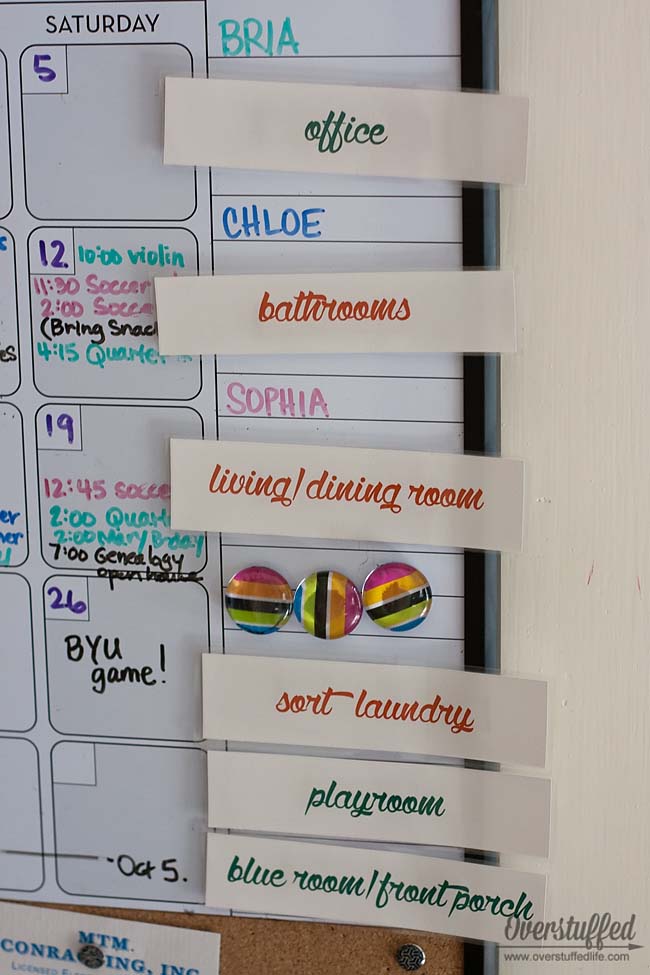 SATURDAY
5
12
10:00 violin
11:30 Soccer
2:00
(Bring
4:15
19
12:45
2:00
2:00 Mary B-day
7:00 Genealogy
open house
26
BYU
game!
Oct 5.
BRIA
office
CHLOE
bathrooms
SOPHIA
living/dining room
sort laundry
playroom
blue room/front porch
MTM
ING, INC
Overstuffed
www.overstuffedlife.com